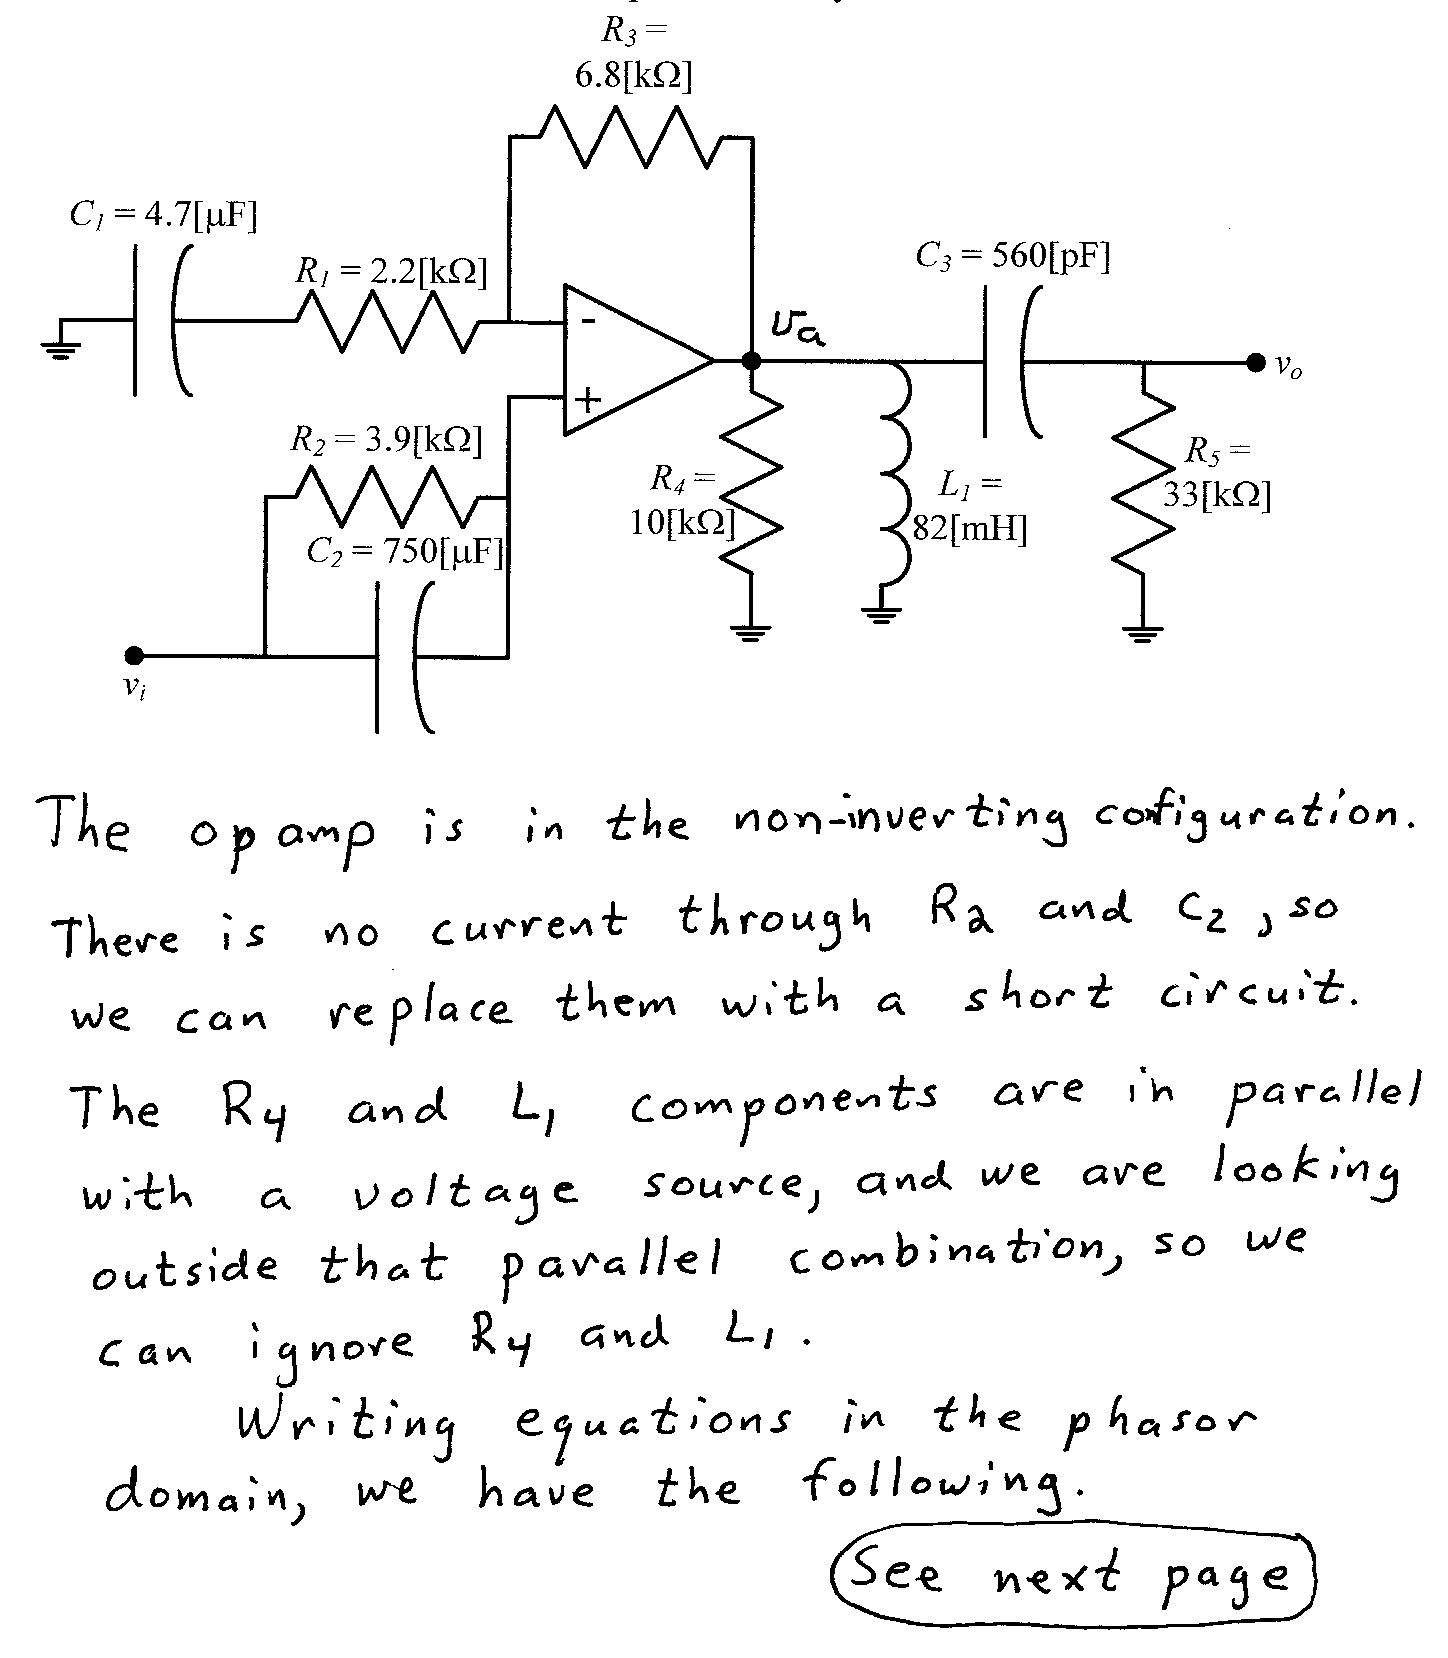 R3 =
6.8[kΩ]
C1 = 4.7[μF]
R1 = 2.2[kΩ]
C3 = 560[pF]
-
va
vo
+
R2 = 3.9[kΩ]
R4 =
10[kΩ]
L1 =
82[mH]
R5 =
33[kΩ]
C2 = 750[μF]
vi
The op amp is in the non-inverting configuration.
There is no current through R2 and C2, so
we can replace them with a short circuit.
The R4 and L1 components are in parallel
with a voltage source, and we are looking
outside that parallel combination, so we
can ignore R4 and L1.
Writing equations in the phasor
domain, we have the following.
See next page